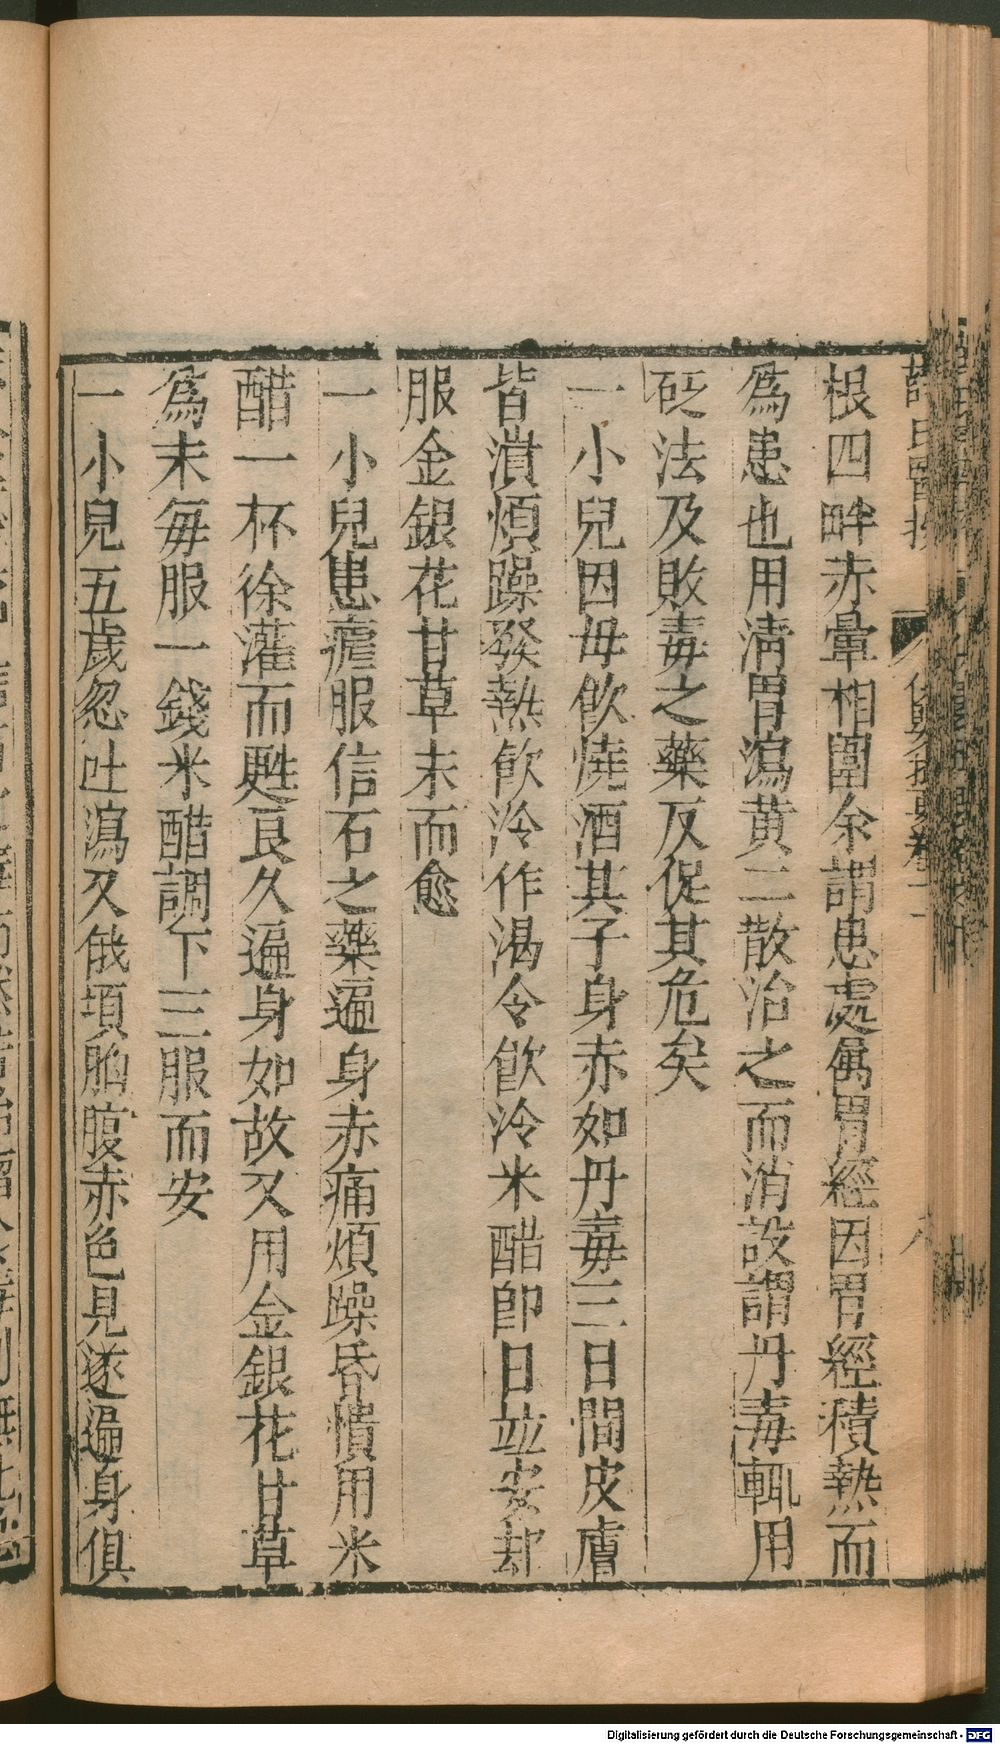 根四畔赤暈相圍余謂患處屬胃經因胃經積熱而
爲患也用淸胃瀉黃二散治之而消設謂丹毒輒用
砭法及敗毒之藥反促其危矣
一小兒因母飮燒酒其子身赤如丹毒三日間皮膚
皆潰煩躁發熱飮冷作渴令飮冷米醋卽日竝安却
服金銀花甘草末而愈
一小兒患瘧服信石之藥遍身赤痛煩躁昏憒用米
醋一杯徐灌而甦良久遍身如故又用金銀花甘草
爲末每服一錢米醋調下三服而安
一小兒五歲忽吐瀉又俄頃胸腹赤色見遂遍身俱
Digitalisierung gefördert durch die Deutsche Forschungsgemeinschaft - DFG